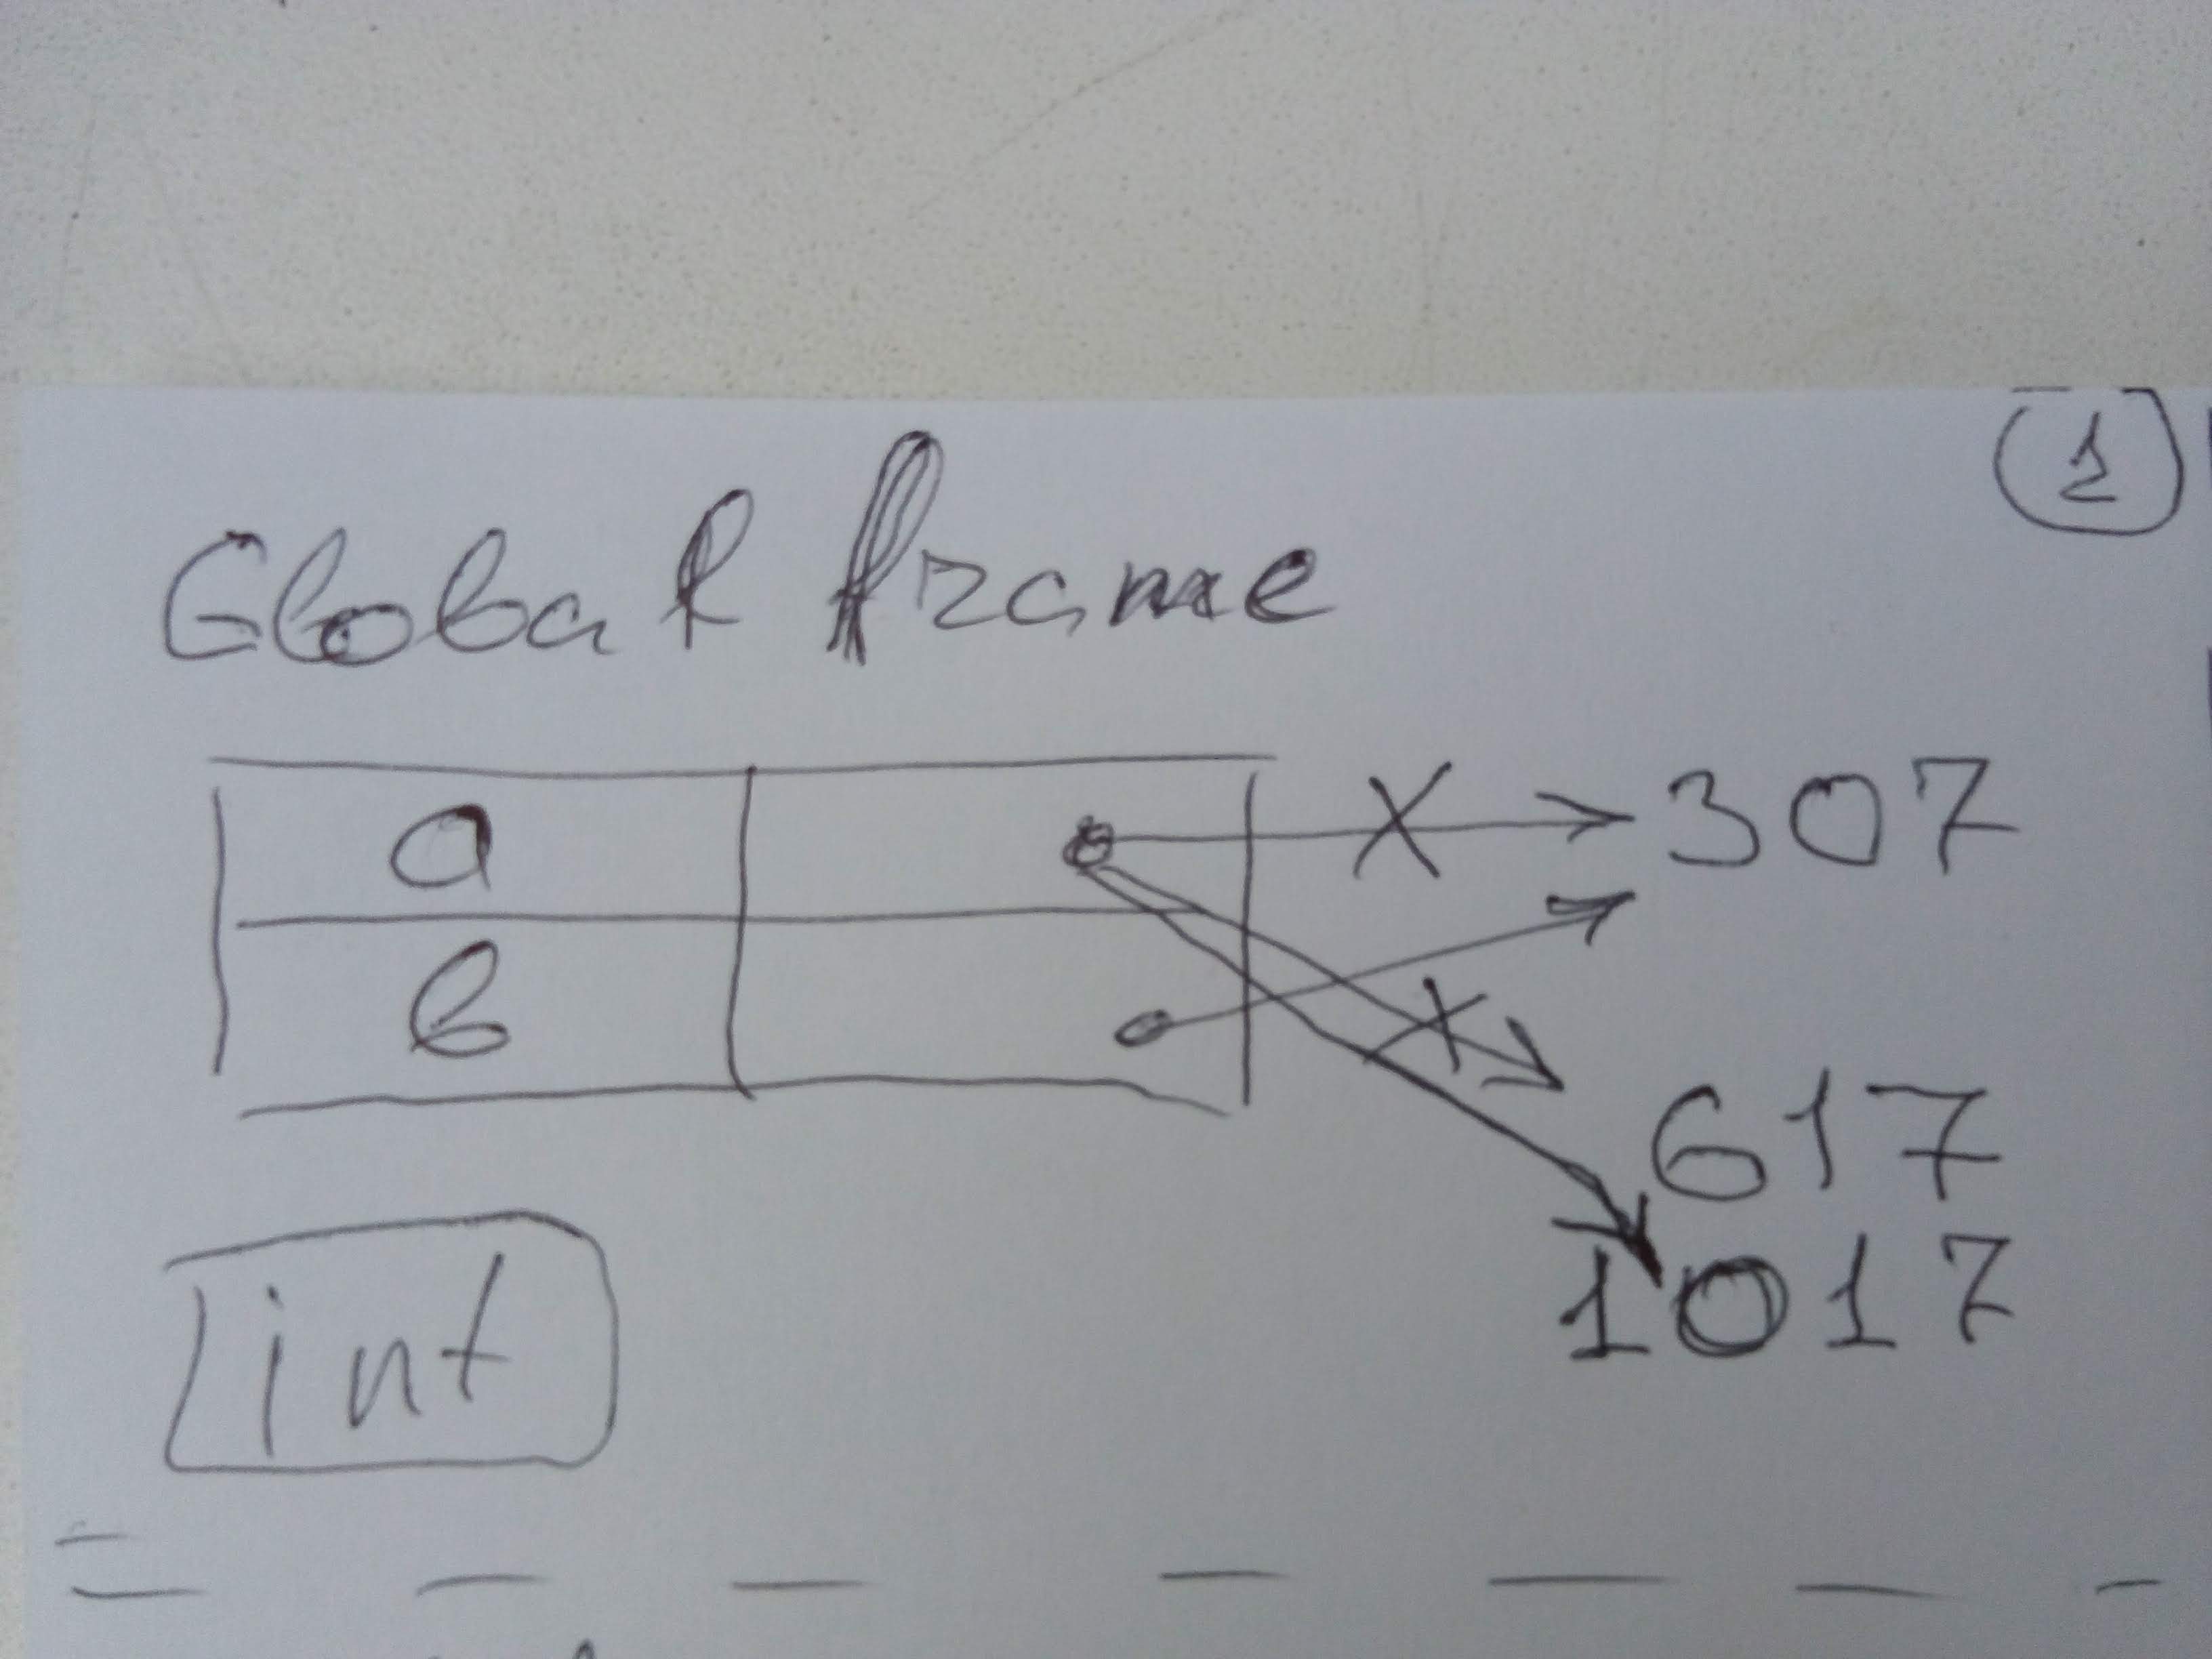 1
Global frame
a
307
b
617
1017
int